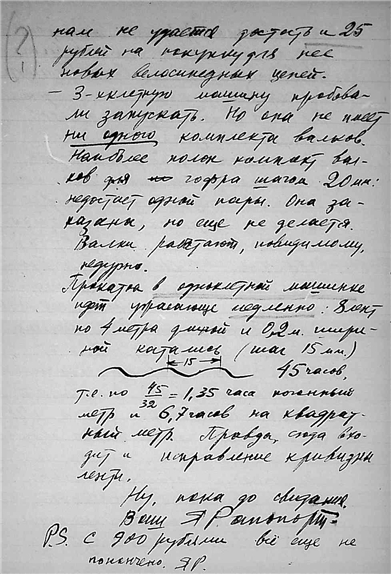 (?)
нам не удается достать и 25
рублей на покупку для нее
новых велосипедных цепей.
– 3-хклетную машину пробова-
ли запускать. Но она не имеет
ни одного комплекта валков.
Наиболее полон комплект вал-
ков для гофра шагом 20 мм:
недостает одной пары. Она за-
казана, но еще не делается.
Валки работают, повидимому,
недурно.
Прокатка в одноклетной машинке
идет угрожающе медленно: 8 лент
по 4 метра длиной и 0,2 м. шири-
ной катались (шаг 15 мм.)
15 45 часов,
т.е. по 45/32 = 1,35 часа погонный
метр и 6,7 часов на квадрат-
ный метр. Правда, сюда вхо-
дит и исправление кривизны
ленты.
Ну, пока до свидания.
Ваш Я Рапопорт.
P.S. С 900 рублями всё еще не
покончено. ЯР.